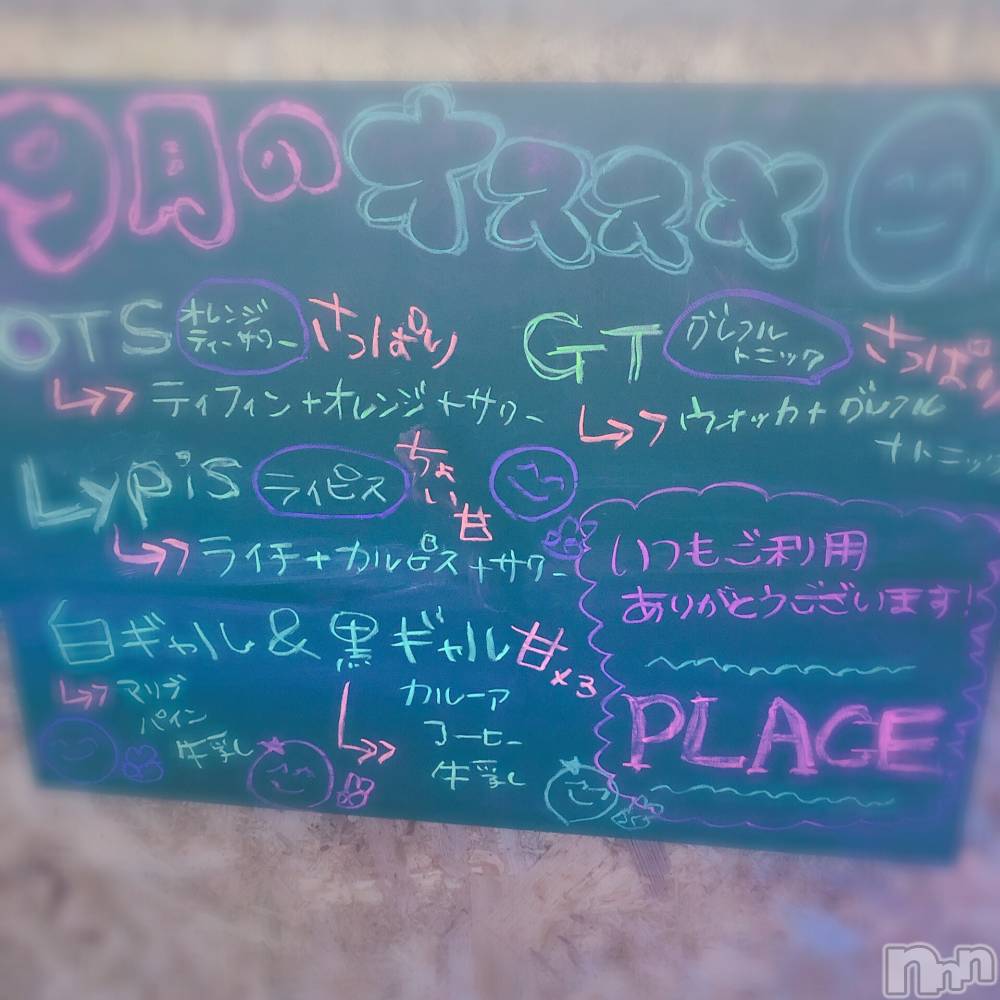 9月のオススメ
OTS オレンジティーサワー さっぱり
ティフィン+オレンジ+サワー
GT グレフルトニック さっぱり
ウォッカ+グレフル
+トニック
Lypis ライピス ちょい甘
ライチ+カルピス+サワー
白ギャル&黒ギャル 甘×3
マリブ
パイン
牛乳
カルーア
コーヒー
牛乳
いつもご利用
ありがとうございます!
PLACE
nnn